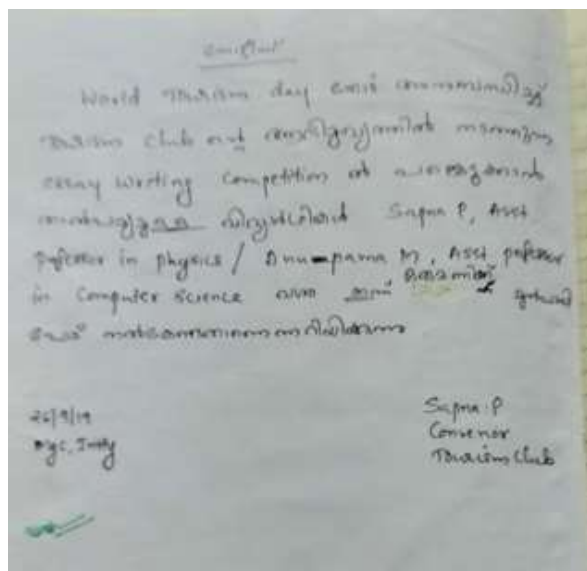 നോട്ടീസ്
World Tourism day നോട് അനുബന്ധിച്ച്
Tourism Club ന്റെ ആഭിമുഖ്യത്തിൽ നടത്തുന്ന
essay writing Competition ൽ പങ്കെടുക്കാൻ
താൽപര്യമുള്ള വിദ്യാർത്ഥികൾ Sapna P, Asst
professor in physics / Anu-pama M, Asst professor
in Computer Science വശം ഇന്ന്
പേര് നൽകേണ്ടതാണെന്നറിയിക്കുന്നു
26/9/19 Sapna. P
Convenor
Tourism Club